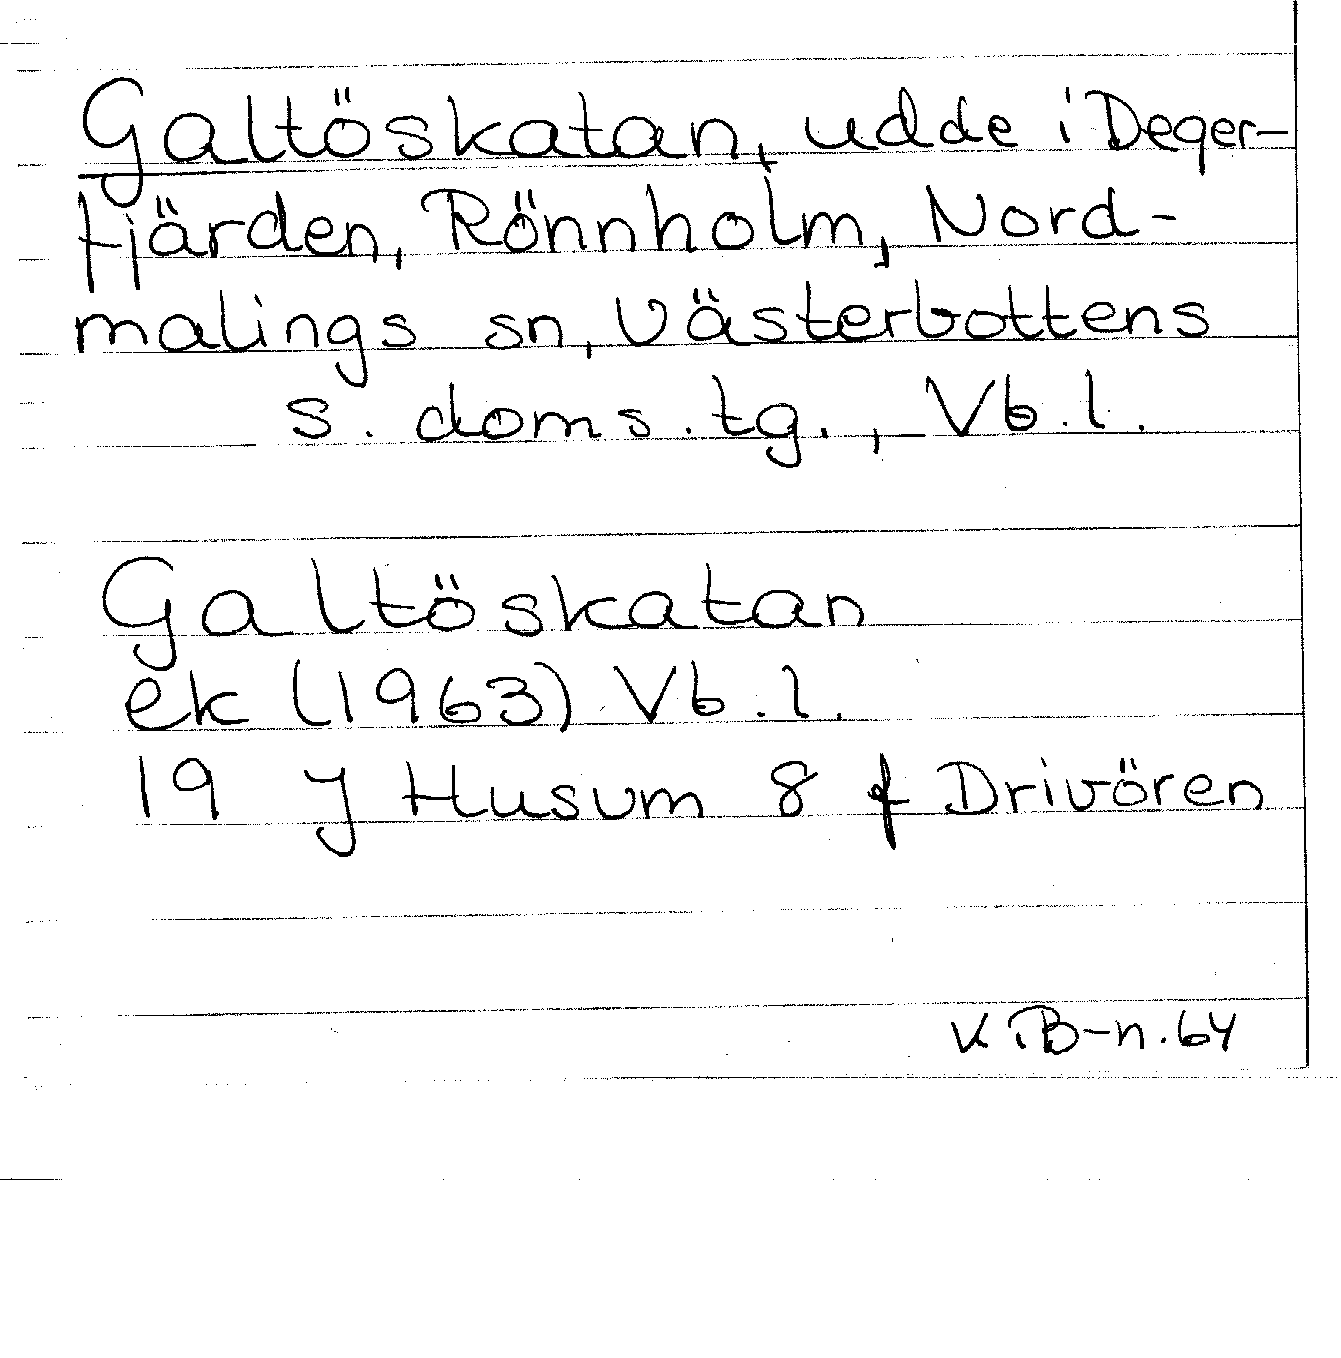 Galtöskatan, udde i Deger-
fjärden, Rönnholm, Nord-
malings sn, Västerbottens
s. doms. tg., Vb. l.
Galtöskatan
ek (1963) Vb. l.
19 J Husum 8 f Drivören
K TB-n. 64